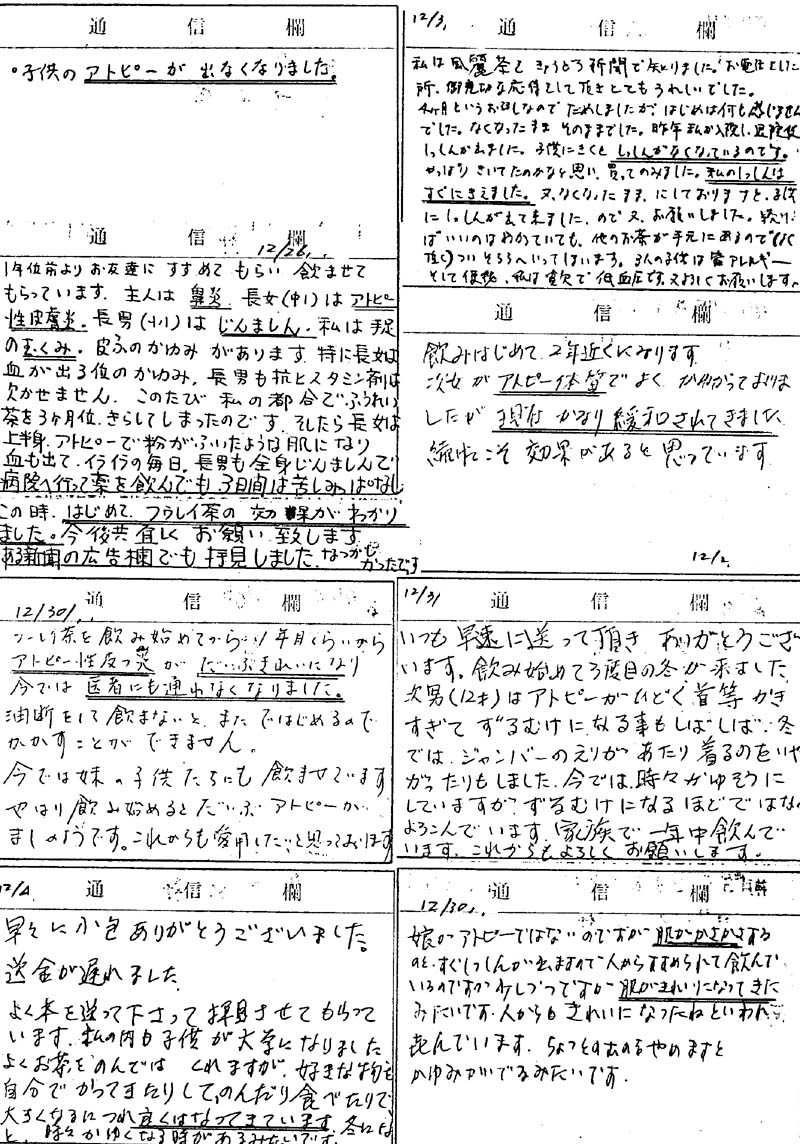 通信欄
○子供の アトピーが 出なくなりました。
通信欄
12/26
1年位前より お友達に すすめて もらい 飲ませて
もらっています. 主人は 鼻炎. 長女(中1)は アトピー
性皮膚炎. 長男(小1)は じんましん. 私は 手足
のむくみ. 皮ふのかゆみ があります. 特に長女は
血が出る位のかゆみ. 長男も抗ヒスタミン剤は
欠かせません. このたび 私の都合で ふうれい
茶を3ヶ月位. きらしてしまったのです. そしたら 長女は
上半身. アトピーで粉がふいたような肌になり
血も出て. イライラの毎日. 長男も全身じんましんで
病院へ行って薬を飲んでも 3日間は苦しみっぱなし
この時. はじめて フウレイ茶の 効果が わかり
ました。今後共 宜しく お願い 致します
ある新聞の広告欄でも 拝見しました. なつかし
かったです
12/3
通信欄
私は風麗茶を
新聞で知りました. お電話をした
所、御親切な応待をして頂きとてもうれしいでした。
というお話しなので ためしましたが、はじめは何も感じません
でした。なくなったまま そのままでした。昨年 私が入院し 退院後
しっしんが出ました。子供にきくと しっしんがなくなっているのです。
やっぱり きいてたのかなと思い、買ってのみました。私のしっしんは
すぐにきえました。又、なくなったまま、にしておりますと、子供
にしっしんが出て来ました、ので又 お願いしました。続けれ
ばいいのはわかっていても、他のお茶が手元にあるので
ついそちらへいってしまいます。3人の子供は皆アレルギー
そして便秘、私は貧血で低血圧です。又よろしくお願いします。
通信欄
飲みはじめて 2年近くになります
次女が アトピー体質で よく かゆがっておりま
したが 現在 かなり 緩和されてきました
続けてこそ 効果があると 思っています
12/2
12/30
通信欄
フーレイ茶を 飲み始めてから 1年目くらいから
アトピー性皮フ炎 が だいぶきれいになり
今では 医者にも通わなくなりました。
油断をして飲まないと、また ではじめるので
かかすことが できません。
今では妹の子供 たちにも 飲ませています
やはり 飲み始めると だいぶ アトピーが
ましのようです。これからも愛用したいと思っております
12/3
通信欄
いつも 早速に送って頂き ありがとうござ
います。飲み始めて3度目の冬が来ました
次男(12才)はアトピーがひどく 首等 かき
すぎて ずるむけに なる事もしばしば. 冬
では、ジャンバーのえりが あたり 着るのをいや
がったりもしました. 今では、時々かゆそうに
していますが ずるむけになるほどではな
よろこんでいます. 家族で 一年中飲んで
います. これからもよろしく お願いします。
12/4
通信欄
早々に小包 ありがとうございました。
送金が遅れました
よく本を送って下さって拝見させて もらって
います. 私の内も子供が 大学になりました
よくお茶をのんでは くれますが. 好きな物を
自分で かってきたりして、のんだり食べたりで
大きくなるにつれ 良くはなってきています. 冬にな
と、時々かゆくなる時があるみたいです。
12/30
通信欄
娘が アトピーではないのですが 肌がかさかさする
のと、すぐしっしんが出ますので人からすすめられて飲んで
いるのですが 少しづつですが 肌がきれいになってきた
みたいです. 人からも きれいになったねといわれ
喜んでいます. やめますと
かゆみがでるみたいです.